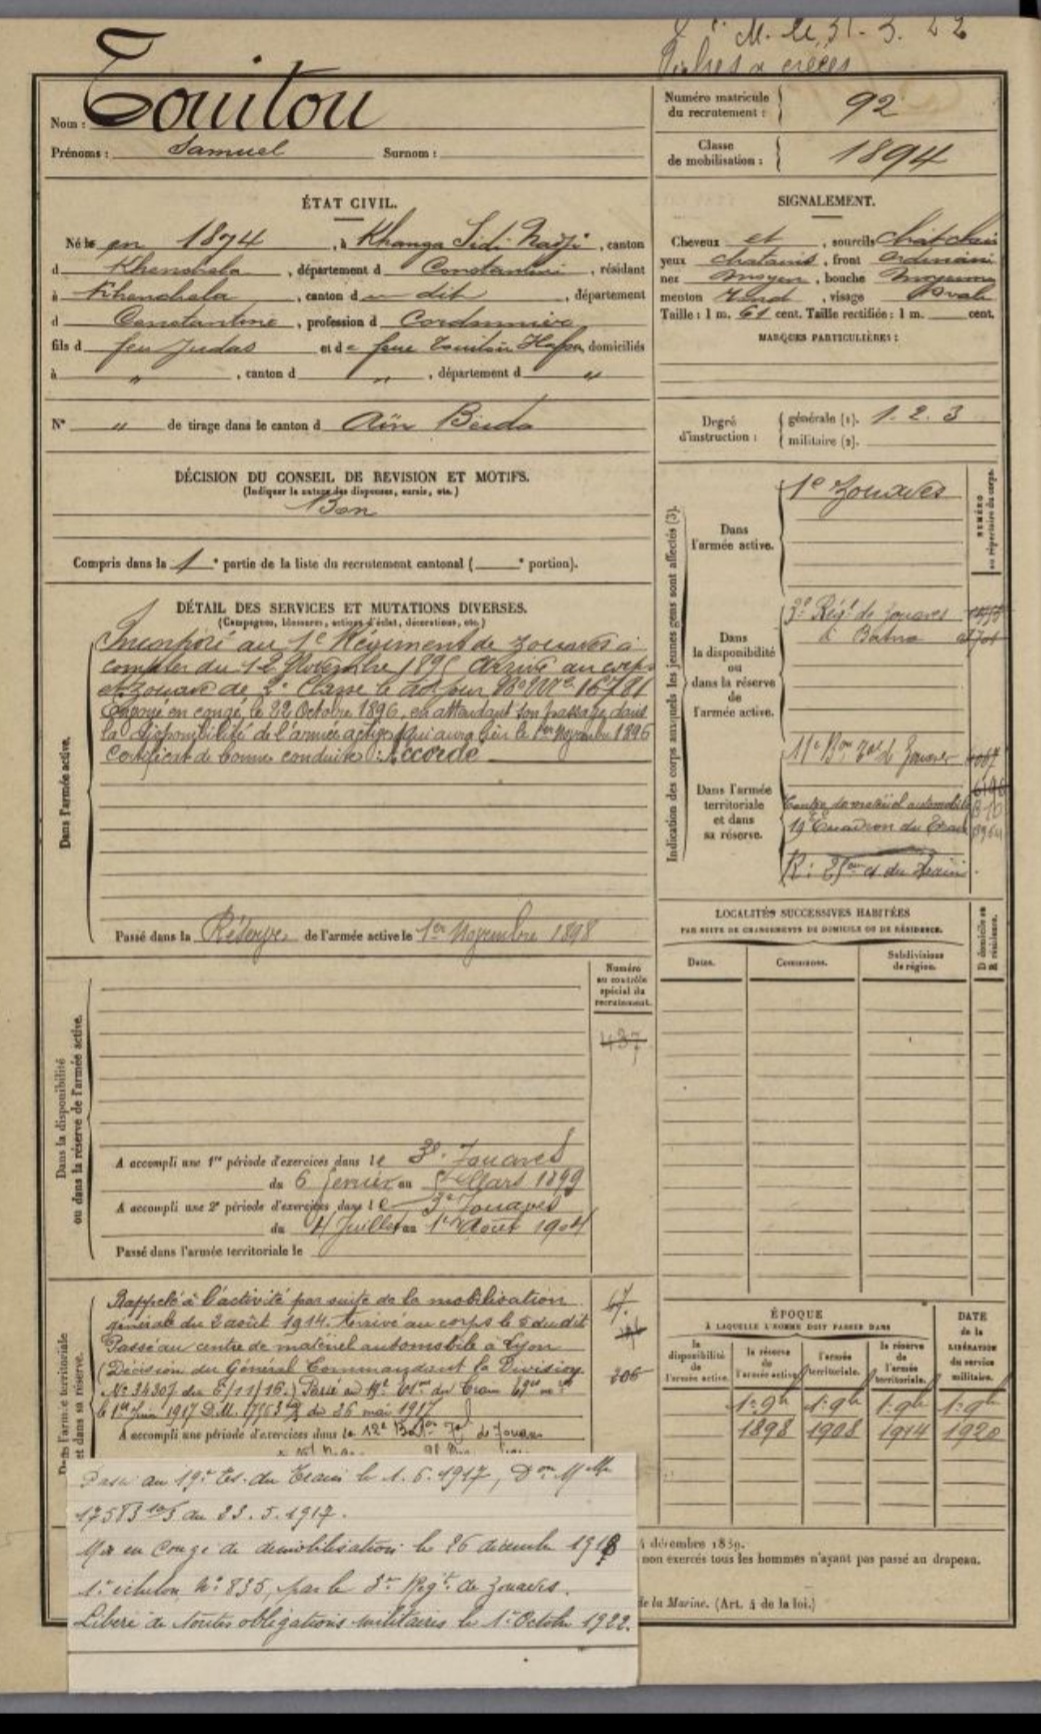 M. le 31. 3. 22
Nom : Touitou
Prénoms : Samuel Surnom :
Numéro matricule du recrutement : 92
Classe de mobilisation : 1894
ÉTAT CIVIL.
Né le en 1874, à Khanga Sidi Nadji, canton
d Khenchela, département d Constantine, résidant
à Khenchela, canton d dit, département
d Constantine, profession d Cordonnier
fils d feu Judas et de feue Touitou, domiciliés
à " , canton d " , département d "
N° " de tirage dans le canton d Aïn Beida
SIGNALEMENT.
Cheveux et , sourcils chât clair
yeux chatains , front ordinaire
nez moyen , bouche moyenne
menton rond , visage ovale
Taille : 1 m. 61 cent. Taille rectifiée : 1 m. cent.
MARQUES PARTICULIÈRES :
Degré d'instruction : générale (1). 1. 2. 3
militaire (2).
DÉCISION DU CONSEIL DE REVISION ET MOTIFS.
(Indiquer la nature des dispenses, sursis, etc.)
Bon
Compris dans la 1e partie de la liste du recrutement cantonal ( e portion).
DÉTAIL DES SERVICES ET MUTATIONS DIVERSES.
(Campagnes, blessures, actions d'éclat, décorations, etc.)
Dans l'armée active.
Incorporé au 1e Régiment de zouaves à
compter du 12 Novembre 1895 Arrivé au corps
et zouave de 2e Classe le dit jour No Mle 16781
Envoyé en congé, le 22 Octobre 1896, en attendant son passage dans
la disponibilité de l'armée active qui aura lieu le 1er Novembre 1896
Certificat de bonne conduite : Accordé
Passé dans la Réserve de l'armée active le 1er Novembre 1898
Indication des corps auxquels les jeunes gens sont affectés (3).
NUMÉRO au répertoire du corps.
Dans l'armée active.
1e Zouaves
Dans la disponibilité ou dans la réserve de l'armée active.
3e Régt de zouaves
à Batna
Dans l'armée territoriale et dans sa réserve.
11e Bon Tal de Zouaves
Centre de matériel automobile
19 Escadron du Train
LOCALITÉS SUCCESSIVES HABITÉES
PAR SUITE DE CHANGEMENTS DE DOMICILE OU DE RÉSIDENCE.
Dates. Communes. Subdivisions de région. D domicile ou R résidence.
Dans la disponibilité ou dans la réserve de l'armée active.
Numéro au contrôle spécial du recrutement.
437
A accompli une 1re période d'exercices dans le 3e Zouaves
du 6 février au 5 Mars 1899
A accompli une 2e période d'exercices dans le 3e Zouaves
du 4 Juillet au 1er Août 1904
Passé dans l'armée territoriale le
Dans l'armée territoriale et dans sa réserve.
Rappelé à l'activité par suite de la mobilisation
générale du 2 août 1914. Arrivé au corps le 5 dudit
Passé au centre de matériel automobile à Lyon
(Décision du Général Commandant la Division
No 34307 du 6/11/16.) Passé au
le 1er Juin 1917 D.M. du 26 mai 1917
A accompli une période d'exercices dans le 12e Baton Tal de Zouaves
67.
206
ÉPOQUE
À LAQUELLE L'HOMME DOIT PASSER DANS
la disponibilité de l'armée active. la réserve de l'armée active. l'armée territoriale. la réserve de l'armée territoriale.
DATE de la LIBÉRATION du service militaire.
1er 9bre 1er 9bre 1er 9bre 1er 9bre
1898 1908 1914 1920
Passé au 19e Es. du Train le 1. 6. 1917, Don Mlle
17583 du 23. 5. 1917.
Mis en congé de démobilisation le 26 décembre 1918
1er échelon No 835, par le 3e Régt de Zouaves.
Libéré de toutes obligations militaires le 1er Octobre 1922.
décembre 1889.
non exercés tous les hommes n'ayant pas passé au drapeau.
de la Marine. (Art. 4 de la loi.)